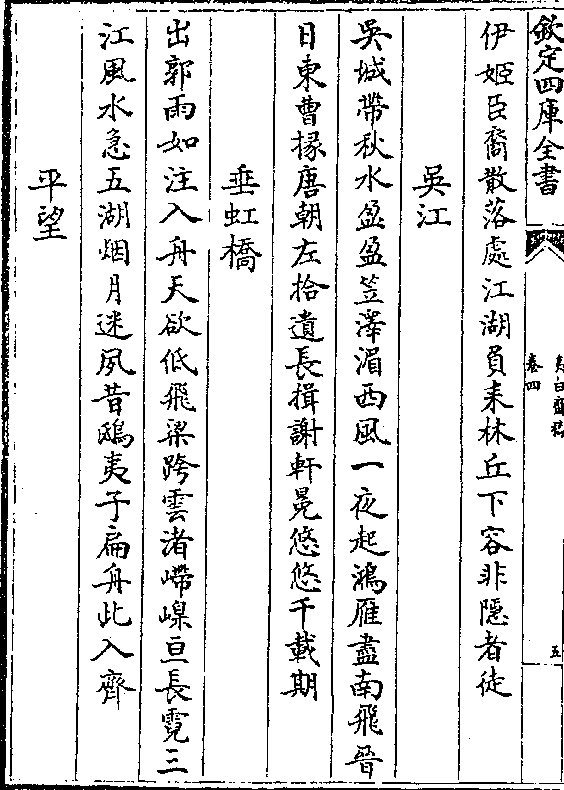 欽定四庫全書
夷白齋稿
卷四
五
伊姬臣裔散落處江湖負耒林丘下容非隱者徒
吳江
吳城帶秋水盈盈笠澤湄西風一夜起鴻雁盡南飛晉
日東曹掾唐朝左拾遺長揖謝軒冕悠悠千載期
垂虹橋
出郭雨如注入舟天欲低飛梁跨雲渚㠑嵲亘長霓三
江風水急五湖烟月迷夙昔鴟夷子扁舟此入齊
平望